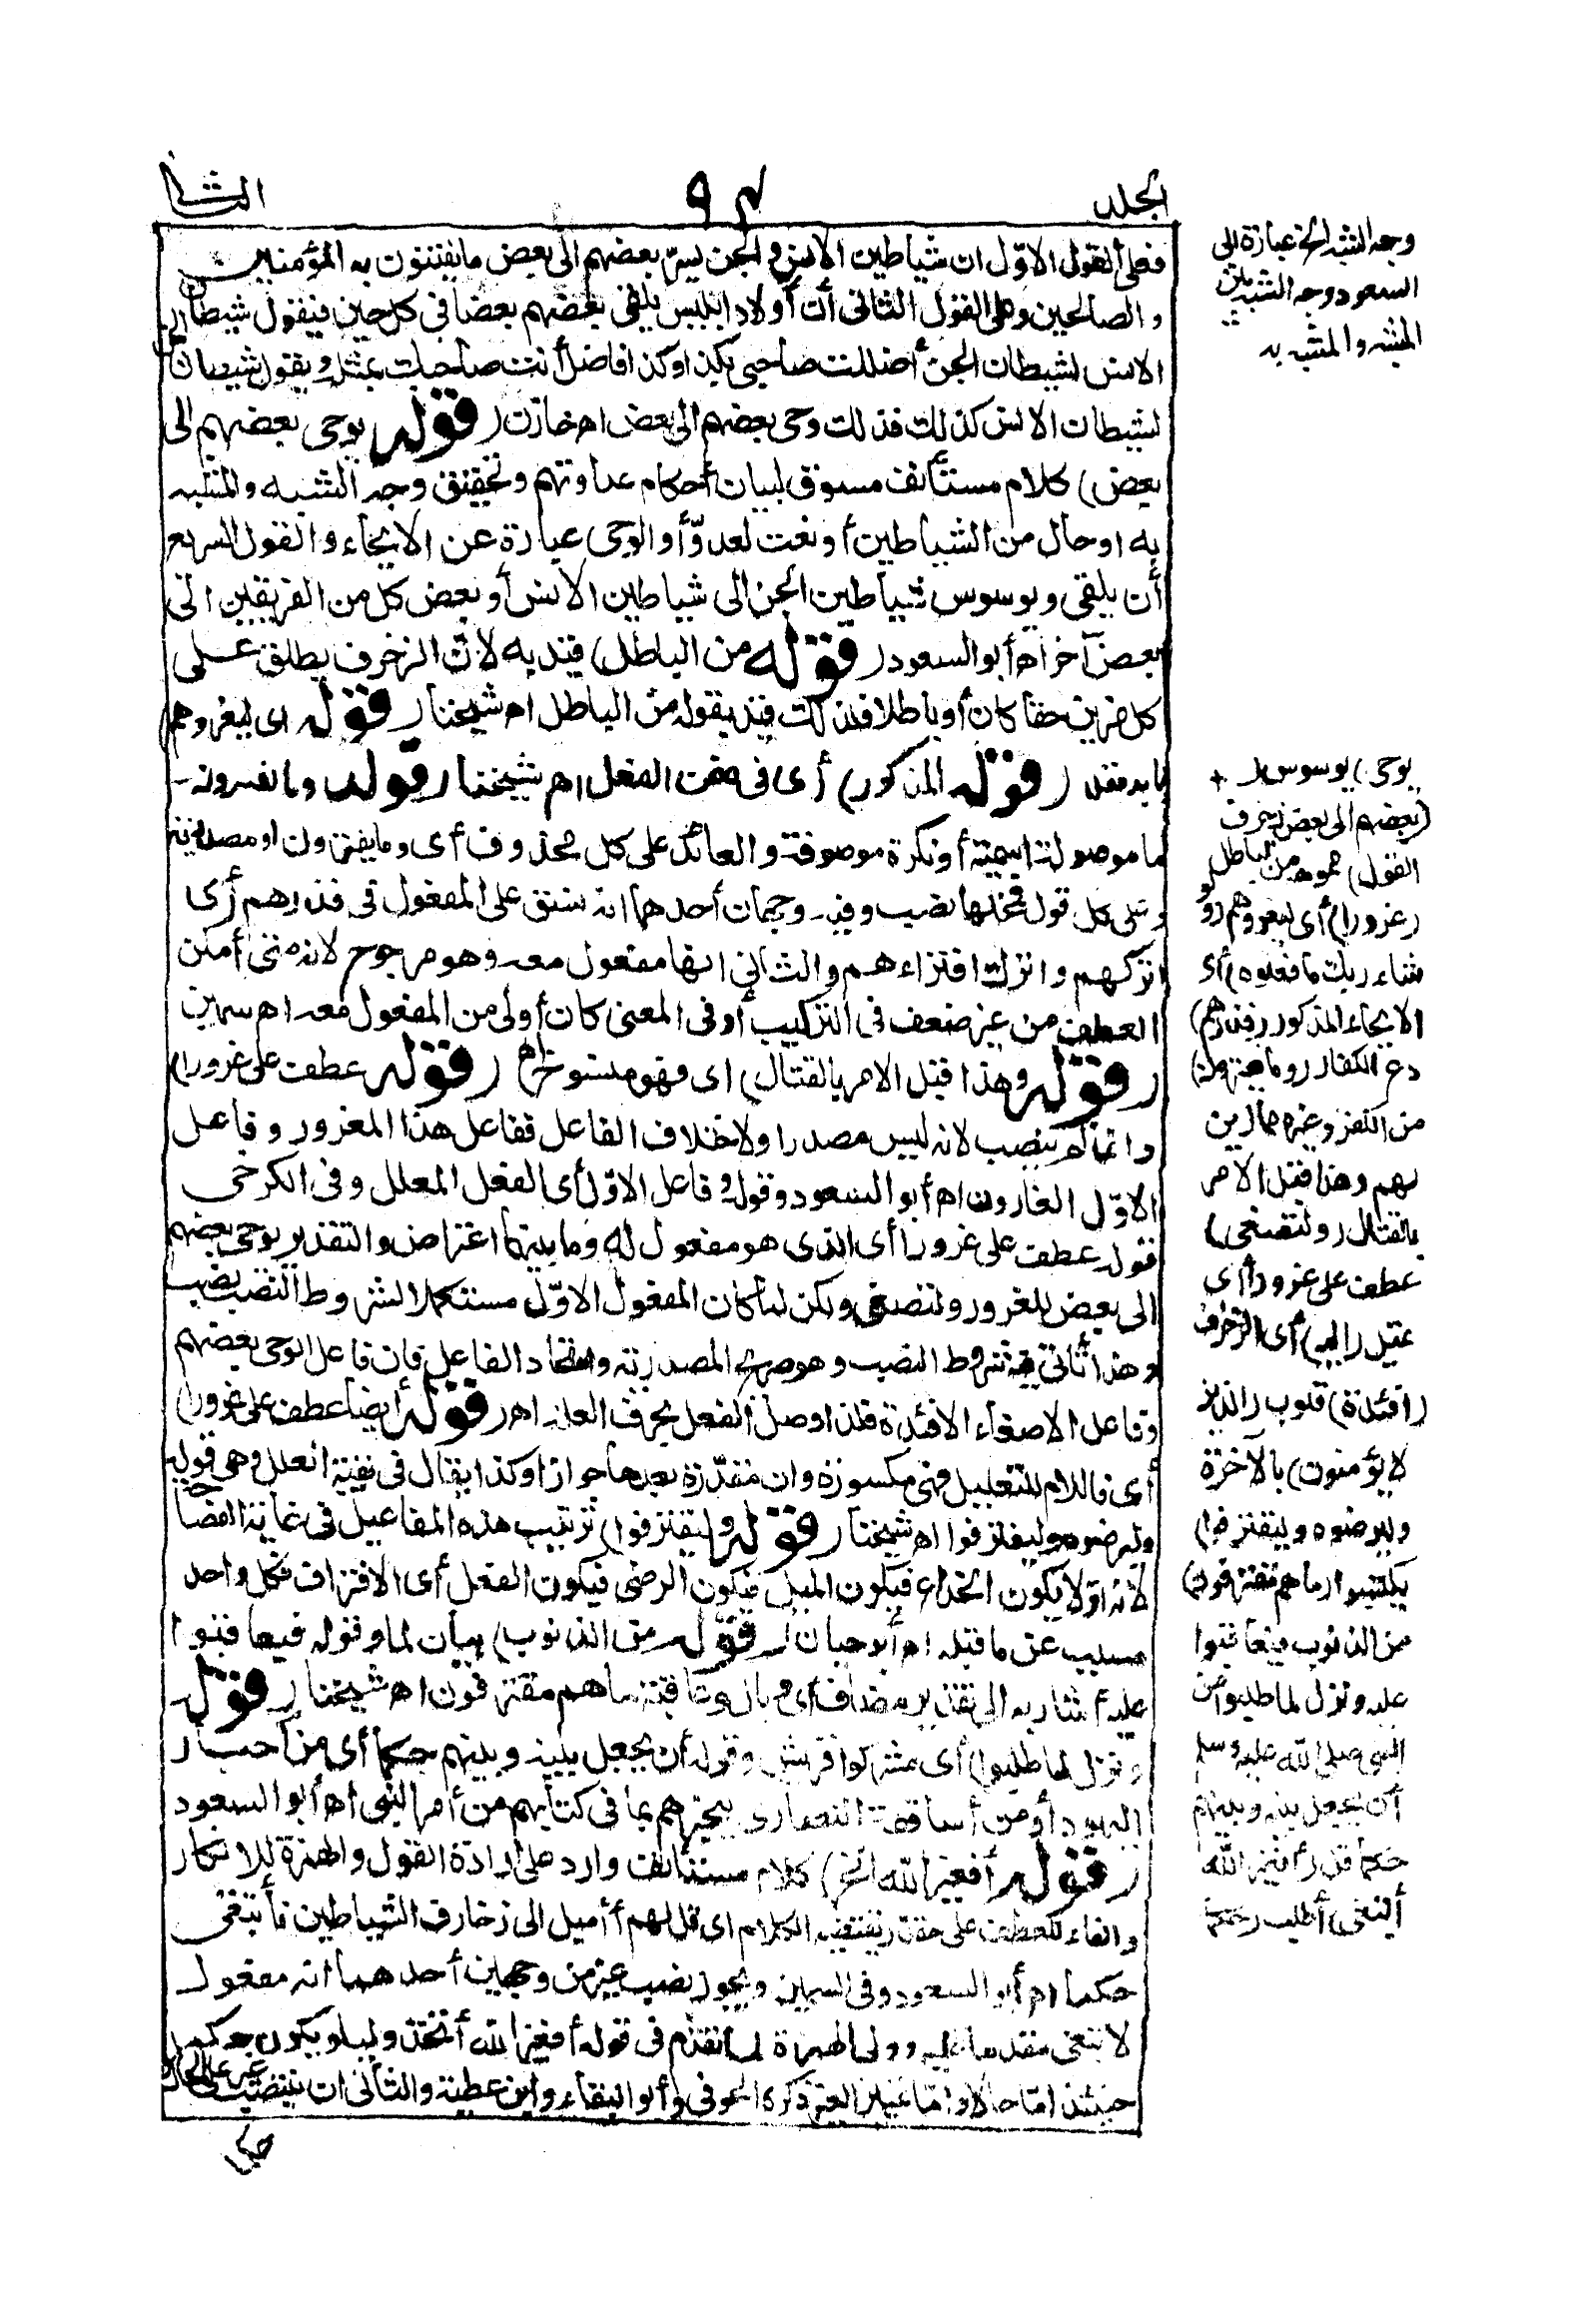 الجلد ٩٢ الثاني
فعلى القول الاوّل ان شياطين الانس والجن يسرّ بعضهم الى بعض ما يفتنون به المؤمنين
والصالحين وعلى القول الثاني أن أولاد ابليس يلقى بعضهم بعضا في كل حين فيقول شيطان
الانس لشيطان الجن أضللت صاحبي بكذا وكذا فاضل أنت صاحبك بمثله ويقول شيطان الجن
لشيطان الانس كذلك فذلك وحى بعضهم الى بعض اه خازن (قوله يوحى بعضهم الى
بعض) كلام مستأنف مسوق لبيان أحكام عداوتهم وتحقيق وجه الشبه والمشبه
به او حال من الشياطين أو نعت لعدوّا والوحى عبارة عن الايحاء والقول السريع
أن يلقى ويوسوس شياطين الجن الى شياطين الانس أو بعض كل من الفريقين الى
بعض آخر اه أبو السعود (قوله من الباطل) قيد به لانّ الزخرف يطلق على
كل مزين حقا كان أو باطلا فلذلك قيد بقوله من الباطل اه شيخنا (قوله اى ليغروهم)
(قوله المذكور) أى فى ضمن الفعل اه شيخنا (قوله وما يفترون)
ما موصولة اسمية أو نكرة موصوفة والعائد على كل محذوف أى وما يفترونه او مصدرية
وعلى كل قول فمحلها نصب وفيه وجهان أحدهما انه نسق على المفعول فى فذرهم أى
اتركهم واترك افتراءهم والثانى انها مفعول معه وهو مرجوح لانه متى أمكن
العطف من غير ضعف فى التركيب أو فى المعنى كان أولى من المفعول معه اه سمين
(قوله وهذا قبل الامر بالقتال) اى فهو منسوخ اه (قوله عطف على غرورا)
وانما لم ينصب لانه ليس مصدرا ولاختلاف الفاعل ففاعل هذا المغرور وفاعل
الاوّل الغارون اه أبو السعود وقوله وفاعل الاوّل أى الفعل المعلل وفى الكرخى
قوله عطف على غرورا أى الذى هو مفعول له وما بينهما اعتراض والتقدير يوحى بعضهم
الى بعض للغرور ولتصغى ولكن لما كان المفعول الاوّل مستكملا لشروط النصب نصب
وهذا فاته شروط النصب وهو صريح المصدرية واتحاد الفاعل فان فاعل الوحى بعضهم
وفاعل الاصغاء الافئدة فلذا وصل الفعل بحرف العلة اه (قوله أيضا عطف على غرورا)
أى فاللام للتعليل فهى مكسورة وان مقدّرة بعدها جوازا وكذا يقال فى بقية العلل وهى قوله
وليرضوه وليقترفوا اه شيخنا (قوله وليقترفوا) ترتيب هذه المفاعيل فى غاية الفصاحة
لانه اوّلا يكون الخداع فيكون الميل فيكون الرضى فيكون الفعل أى الاقتراف فكل واحد
مسبب عن ما قبله اه أبو حيان (قوله من الذنوب) بيان لما وقوله فيعاقبوا
عليه أشار به الى تقدير مضاف أى وبال وعاقبة ما هم مقترفون اه شيخنا (قوله
ونزل لما طلبوا) أى مشركوا قريش وقوله أن يجعل بينه وبينهم حكما أى من أحبار
اليهود أو من أساقفة النصارى يخبرهم بما فى كتابهم من أمر النبى اه أبو السعود
(قوله أفغير الله الخ) كلام مستأنف وارد على ارادة القول والهمزة للانكار
والفاء للعطف على مقدّر يقتضيه الكلام اى قل لهم أأميل الى زخارف الشياطين فأبتغى
حكما اه أبو السعود وفى السمين ويجوز نصب غير من وجهين أحدهما انه مفعول
لابتغى مقدما عليه وولى الهمزة لما تقدّم فى قوله أفغير الله أتخذ وليا ويكون حكما
حينئذ امّا حالا وامّا تمييزا لغير ذكره الحوفى وأبو البقاء وابن عطية والثانى ان ينتصب غير على الحال
حكما
وجه الشبه الخ عبارة ابى
السعود وجه الشبه بين
المشبه والمشبه به
يوحى) يوسوس
(بعضهم الى بعض زخرف
القول) مموهه من الباطل
(غرورا) أى ليغروهم (ولو
شاء ربك ما فعلوه) أى
الايحاء المذكور (فذرهم)
دع الكفار (وما يفترون)
من الكفر وغيره مما زين
لهم وهذا قبل الامر
بالقتال (ولتصغى)
عطف على غرورا أى
تميل (اليه) أى الزخرف
(افئدة) قلوب (الذين
لا يؤمنون) بالآخرة
وليرضوه وليقترفوا)
يكتسبوا (ما هم مقترفون)
من الذنوب فيعاقبوا
عليه ونزل لما طلبوا من
النبى صلى الله عليه وسلم
أن يجعل بينه وبينهم
حكما قل (أفغير الله
أبتغى) أطلب (حكما